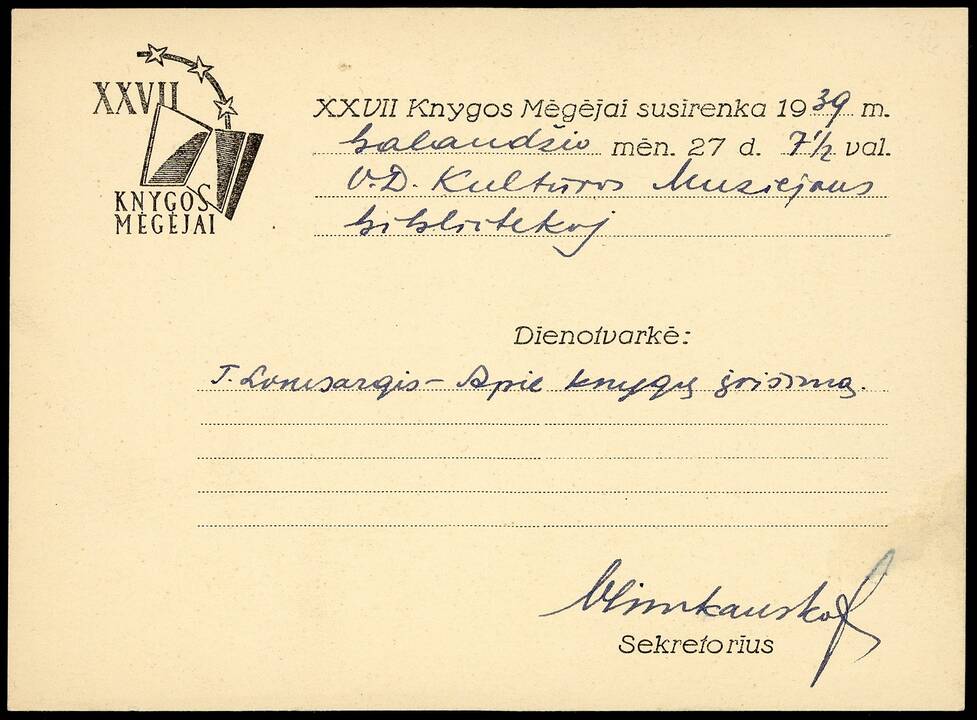 XXVII
KNYGOS
MĖGĖJAI
XXVII Knygos Mėgėjai susirenka 1939 m.
balandžio mėn. 27 d. 7½ val.
V.D. Kultūros Muziejaus
bibliotekoj
Dienotvarkė:
T. Lomsargis – Apie knygų įrišimą.
Sekretorius